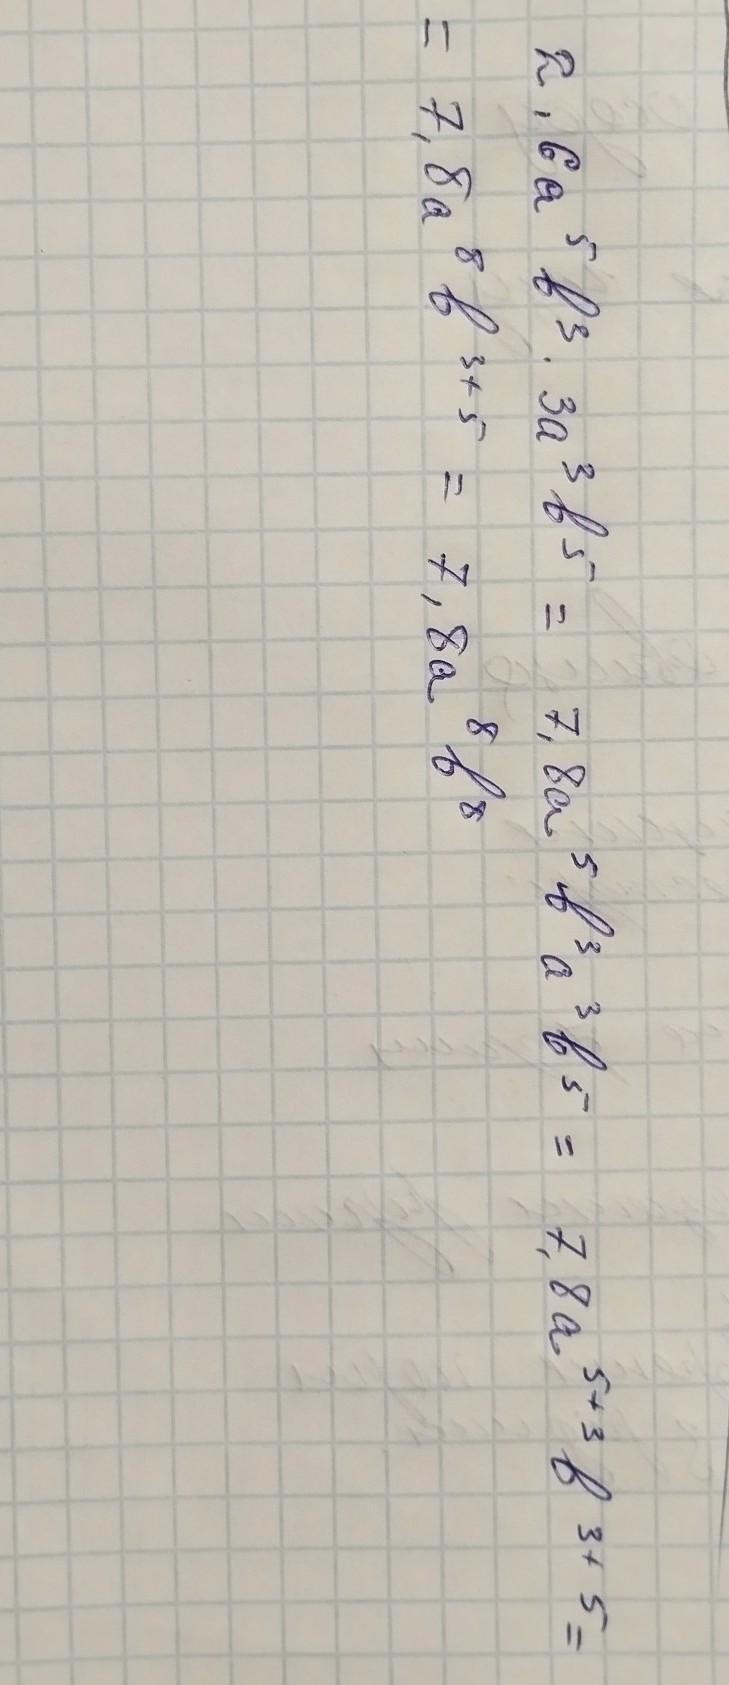 2,6a⁵b³ · 3a³b⁵ = 7,8a⁵b³a³b⁵ = 7,8a⁵⁺³b³⁺⁵ =
= 7,8a⁸b³⁺⁵ = 7,8a⁸b⁸